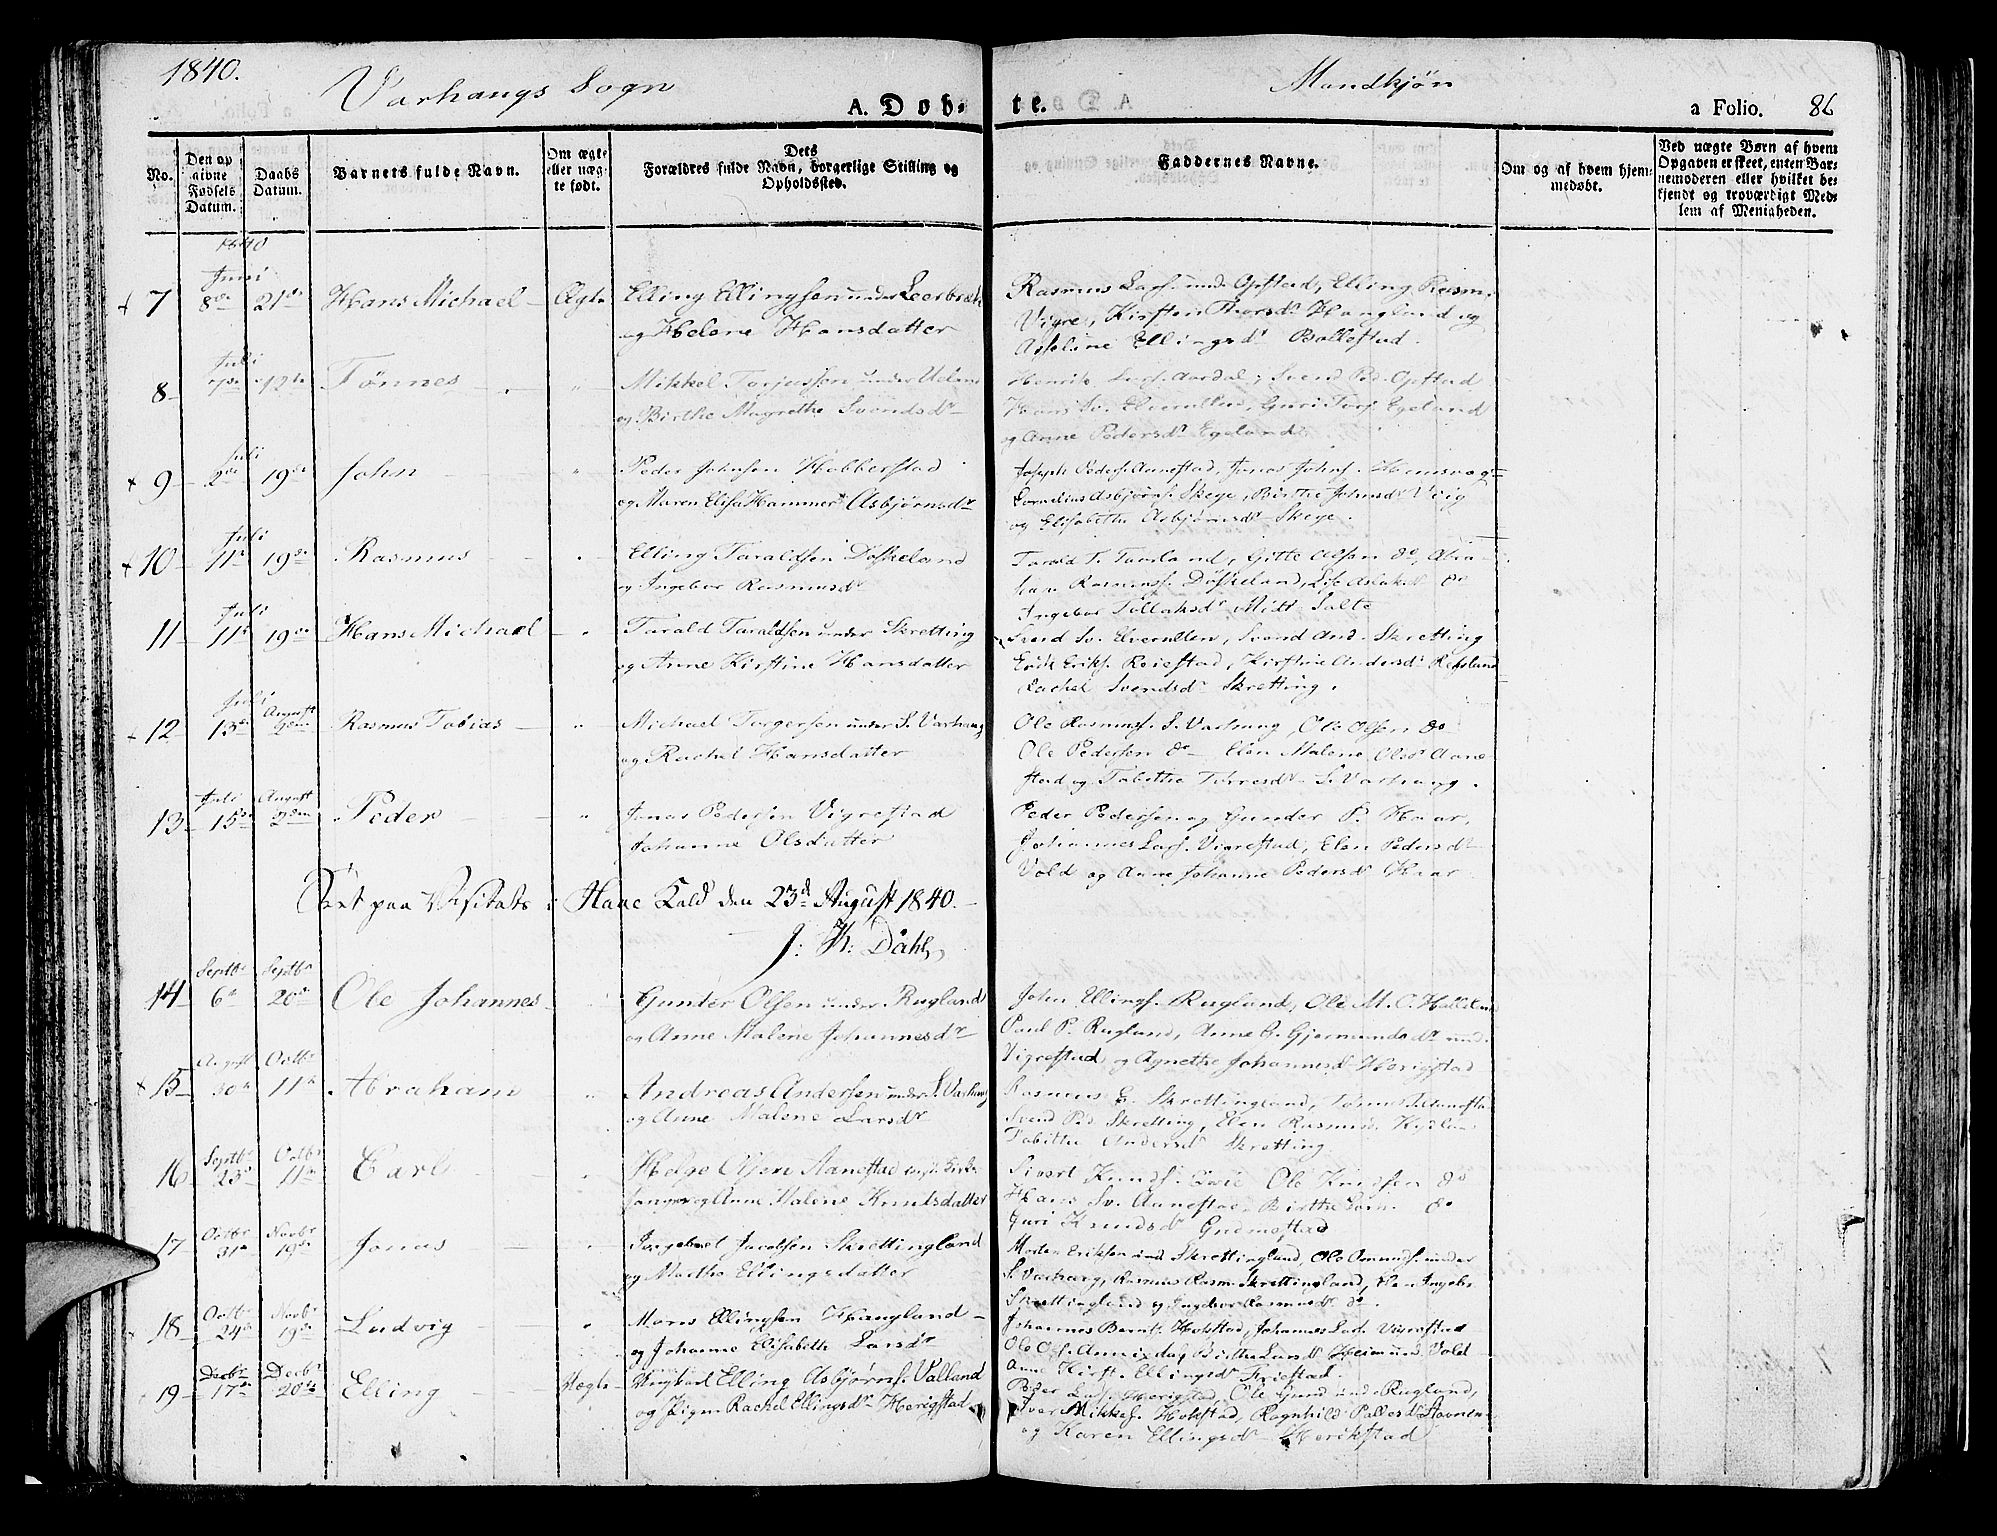 1840.
Varhaugs Sogn
Mandkjøn
A. Døb-
te.
a Folio. 86
No.
Den op
givne
Fødsels
Datum.
Daabs
Datum.
Barnets fulde Navn.
Om ægte
eller uæg-
te født.
Dets
Forældres fulde Navn, borgerlige Stilling og
Opholdssted.
Faddernes Navne.
Om og af hvem hjem-
medøbt.
Ved uægte Børn af hvem
Opgaven er skeet, enten Bar-
nemoderen eller hvilket be-
kjendt og troværdigt Med-
lem af Menigheden.
1840
Juni
7 8de 21de Hans Michael Ægte Elling Ellingsen under Leerbræk
og Helene Hansdatter
Rasmus Lars. und. Opstad, Elling Rasm.
Vigre, Kirsten Thorsdr Haugland og
Asseline Ellingsdr Ballestad.
Juli
8 12te Tønnes " Mikkel Torjussen under
og Birthe Magrethe Svendsdr
Henrik Lars. Aardal, Svend Ped. Opstad
Hans Sv. Guri Torj. Egeland
og Anne Pedersdr Egeland
Juli
9 2den 19de John " Peder Johnsen Hobberstad
og Maren Elisa Hammer Asbjørnsdr
Joseph Peders. Aanestad, Jonas Johns.
Cornelius Asbjørns. Skeye, Birthe Johnsdr
og Elisabethe Asbjørnsdr Skeye.
Juli
10 11te 19de Rasmus " Elling Taraldsen Døskeland
og Ingebor Rasmusdr
Tarald T. Tamland, Gitte Olsen do, Abra-
ham Rasmuss. Døskeland, do
Ingebor Tollaksdr Midt Salte
Juli
11 11te 19de Hans Michael " Tarald Taraldsen under Skretting
og Anne Kirstine Hansdatter
Svend Sv. Svend And. Skretting
Erik Eriks. Reiestad, Kirstine Andersdr
Rachel Svendsdr Skretting.
Juli August
12 13de 2den Rasmus Tobias " Michael Torgersen under S. Varhaug
og Rachel Hansdatter
Ole Rasmuss. S. Varhaug, Ole Olsen do
Ole Pedersen do Elen Malene Olsdr Aane
stad og Tabitha Torresdr S. Varhaug.
Juli August
13 15de 2den Peder " Jonas Pedersen Vigrestad
Johanne Olsdatter
Peder Pedersen og Gunder P. Haar,
Johannes Lars. Vigrestad, Elen Pedersdr
Vold og Anne Johanne Pedersdr Haar
Seet paa Visitats i Haae Kald den 23d August 1840.
J: K: Dahl,
Septbr Septbr
14 6te 20de Ole Johannes Gunder Olsen under Rugland
og Anne Malene Johannesdr
John Ellings. Rugland, Ole M. O.
Paul P. Rugland, Anne G. Gjermundsdr und.
Vigrestad og Agnethe Johannesdr Herigstad
August Octbr
15 30te 11te Abraham " Andreas Andersen under S. Varhaug
og Anne Malene Larsdr
Rasmus E. Skrettingland,
Svend Ped. Skretting, Elen Rasmusd.
Tabitha Andersdr Skretting
Septbr Octbr
16 23de 11te Carl " Helge Olsen Aanestad
sanger og Anne Malene Knudsdatter
Sivert Knuds. Ole Knudsen do
Hans Sv. Aanestad Birthe do
Guri Knudsdr Gudmestad
Octbr Novbr
17 31te 19de Jonas " Ingebret Jacobsen Skrettingland
og Marthe Ellingsdatter
Morten Eriksen und Skrettingland, Ole Omunds. under
S. Varhaug, Rasmus Rasm. Skrettingland, Ingebr
Skrettingland og Ingebor Rasmusdr do.
Octbr Novbr
18 24de 19de Ludvig " Mons Ellingsen Haugland
og Johanne Elisabeth Larsdr
Johannes Bernts. Hokstad, Johannes Lars. Vigrestad
Ole Ols. Birthe Larsdr Vold
Anne Kirst. Ellingsdr Friestad
Decbr Decbr
19 17de 20de Elling Uægte Ungkarl Elling Asbjørns. Valland
og Pigen Rachel Ellingsdr Herigstad
Peder Lars. Herigstad, Ole Gund und Rugland,
Iver Mikkels. Hokstad, Ragnhild Pallesdr Hovnen
og Karen Ellingsdr Herikstad